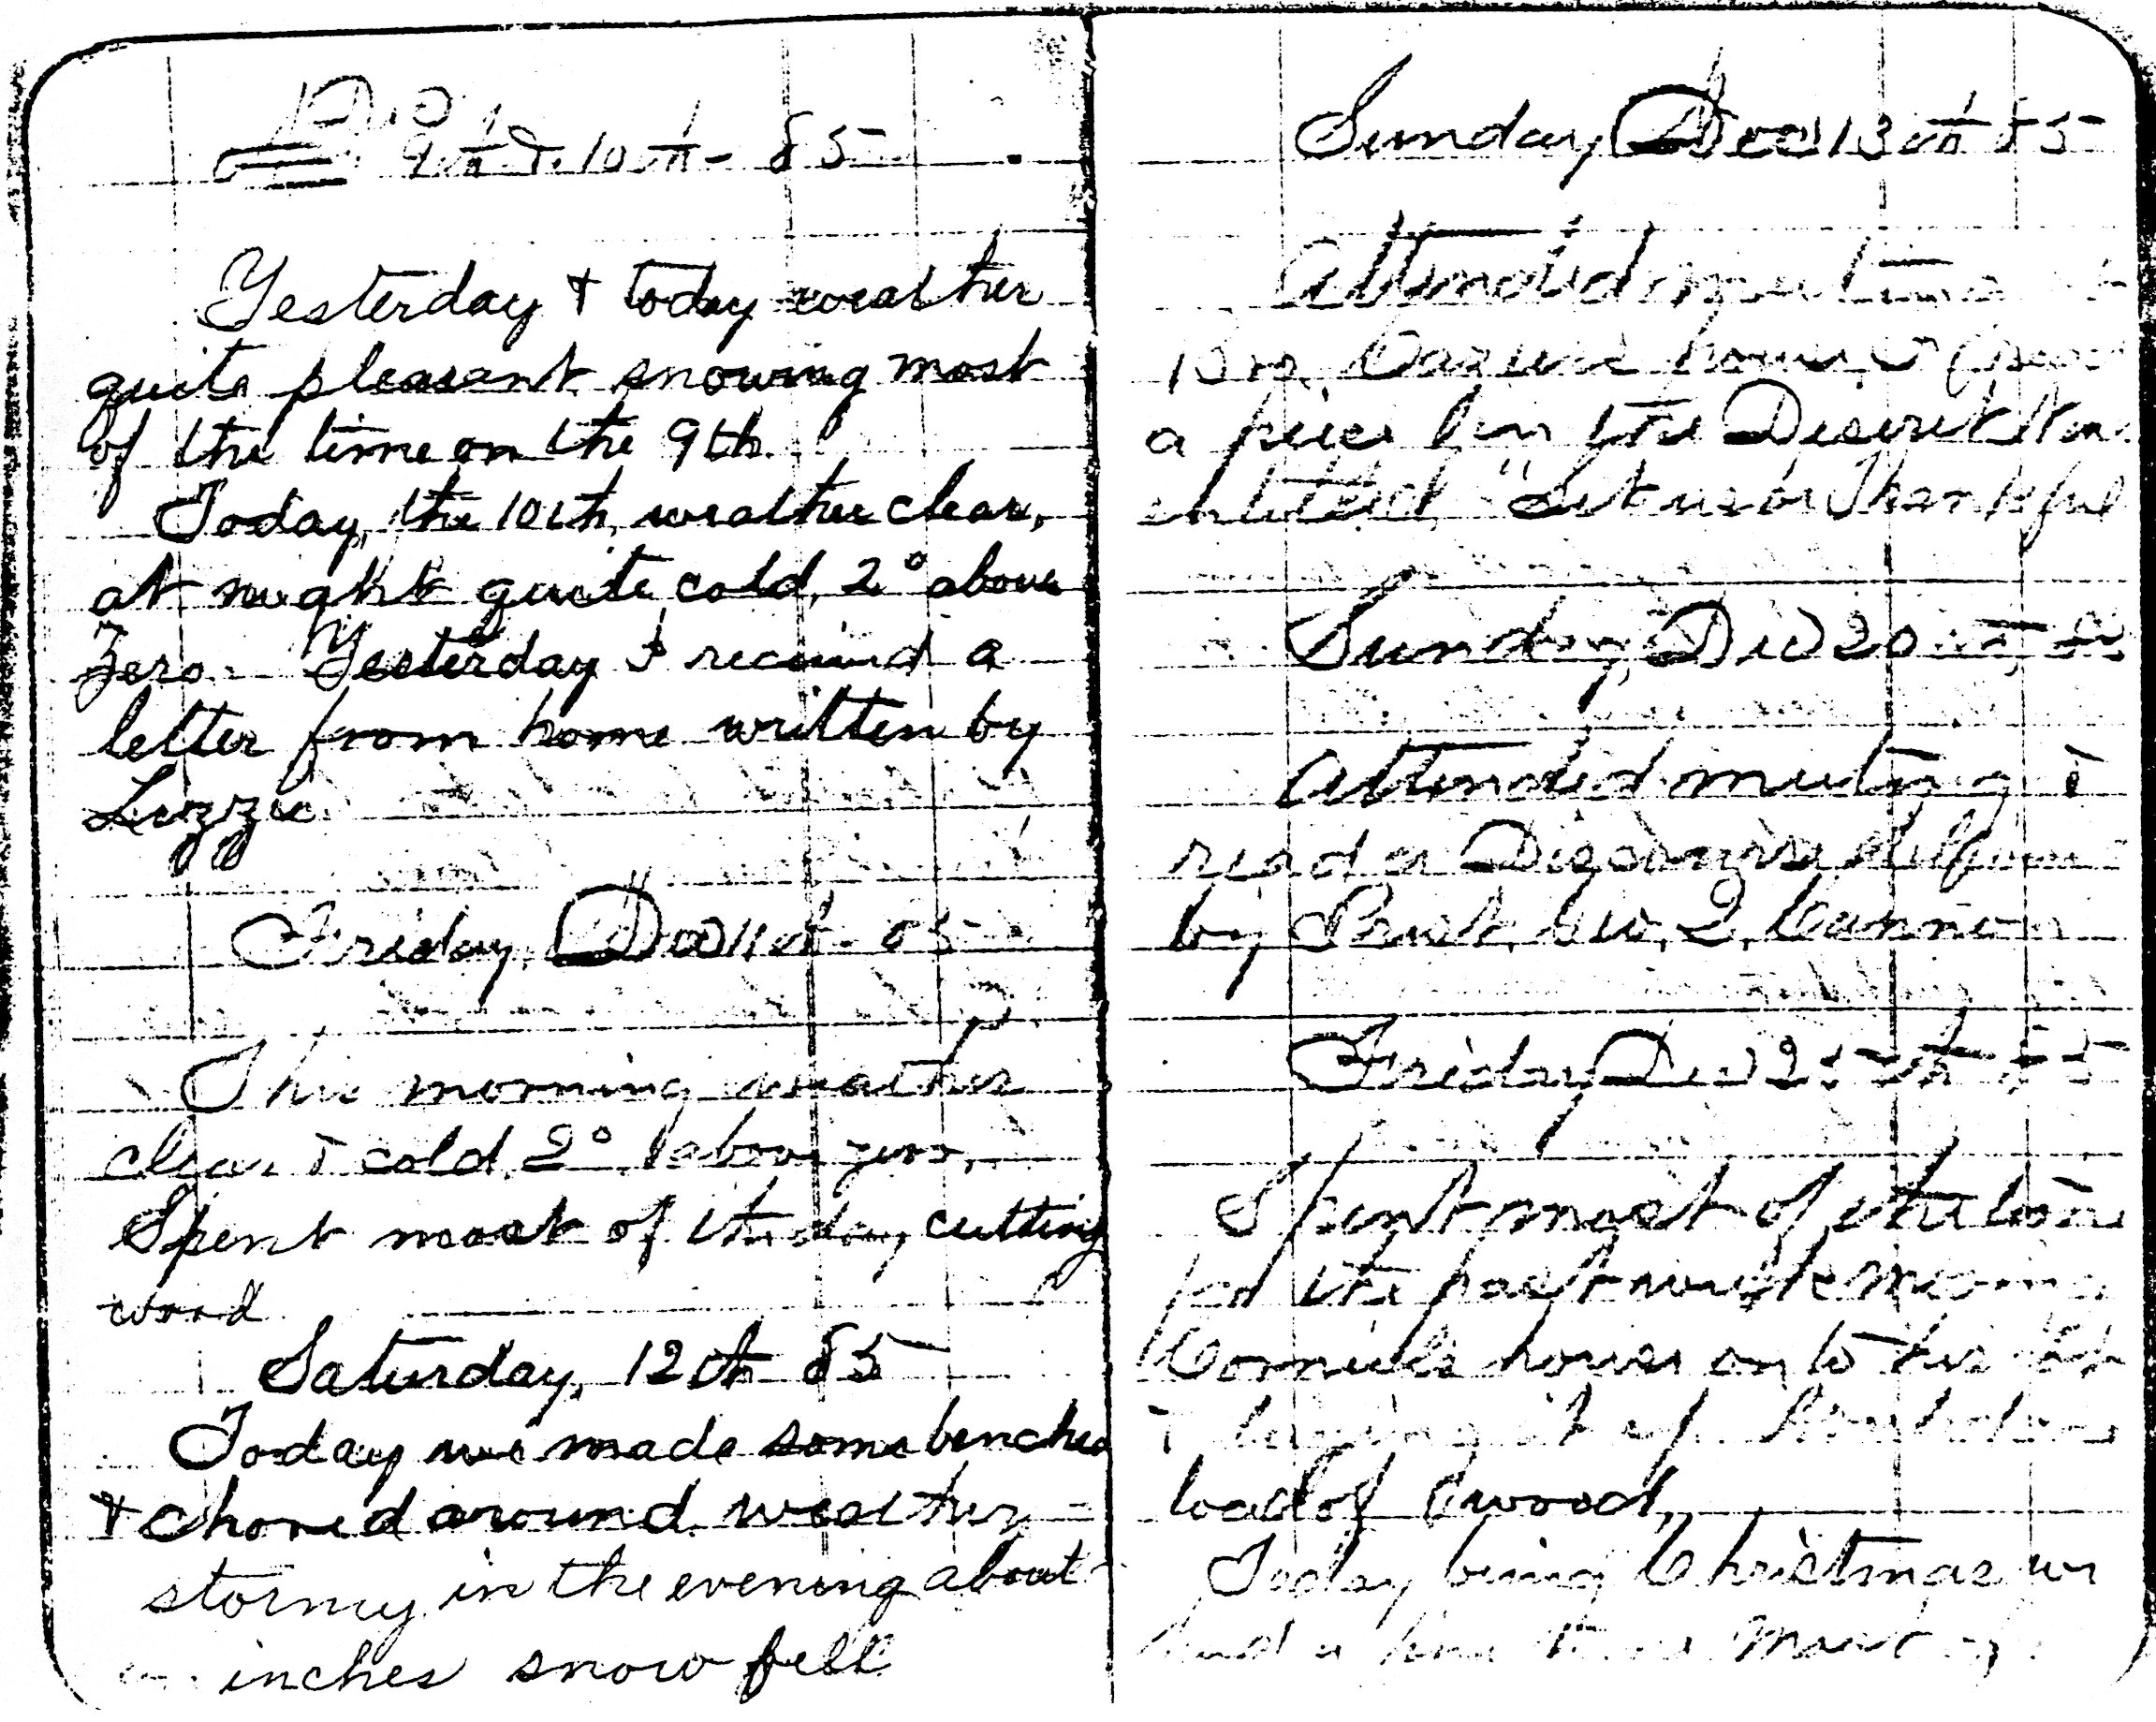 Dec
9th & 10th - 85
Yesterday & today weather
quite pleasant snowing most
of the time on the 9th.
Today, the 10th, weather clear,
at night quite cold, 2° above
Zero. Yesterday I received a
letter from home written by
Lizzie
Friday, Dec 11th - 85
This morning weather
clear & cold, 2° above zero,
Spent most of the day cutting
wood
Saturday, 12th 85
Today we made some benches
& chored around. weather
stormy in the evening about
inches snow fell
Sunday Dec 13th 85
Attended meeting
house,
a piece in the Deseret
entitled, "Let us be Thankful
Sunday, Dec 20th, 85
Attended meeting &
read a Discourse
by Prest. Geo. Q. Cannon
Friday Dec 25th 85
Spent most of the time
the past week moving
house on to his
&
load of wood,
Today being Christmas we
had a